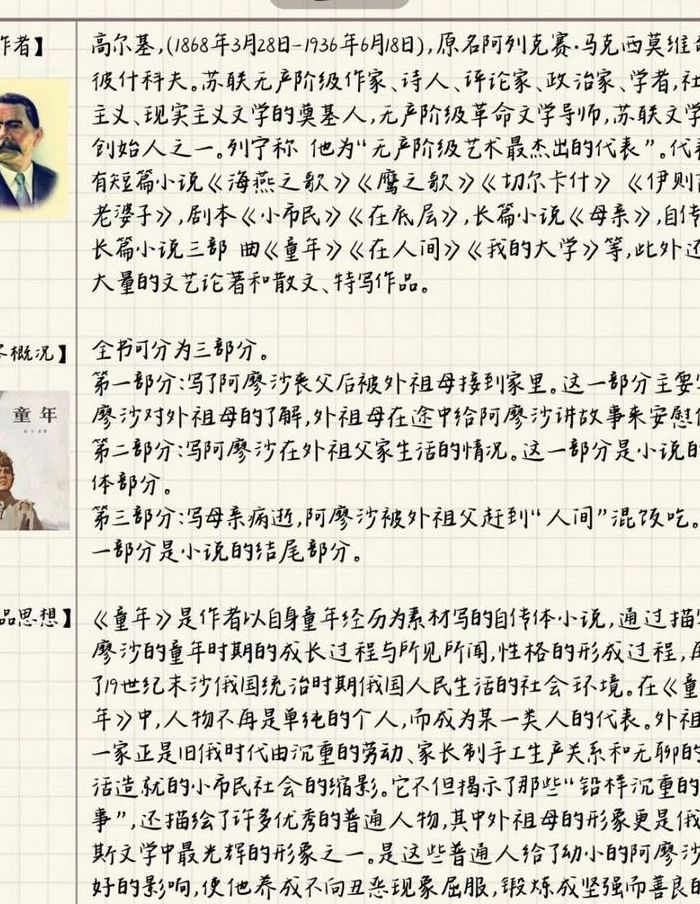 作者】
高尔基,(1868年3月28日-1936年6月18日),原名阿列克赛·马克西莫维
彼什科夫。苏联无产阶级作家、诗人、评论家、政治家、学者,社
主义、现实主义文学的奠基人,无产阶级革命文学导师,苏联文学
创始人之一。列宁称 他为“无产阶级艺术最杰出的代表”。代
有短篇小说《海燕之歌》《鹰之歌》《切尔卡什》 《伊则
老婆子》,剧本《小市民》《在底层》,长篇小说《母亲》,自传
长篇小说三部 曲《童年》《在人间》《我的大学》等,此外还
大量的文艺论著和散文、特写作品。
概况】
全书可分为三部分。
第一部分:写了阿廖沙丧父后被外祖母接到家里。这一部分主要
廖沙对外祖母的了解,外祖母在途中给阿廖沙讲故事来安慰
第二部分:写阿廖沙在外祖父家生活的情况。这一部分是小说的
体部分。
第三部分:写母亲病逝,阿廖沙被外祖父赶到“人间”混饭吃。
一部分是小说的结尾部分。
童年
品思想】
《童年》是作者以自身童年经历为素材写的自传体小说,通过描
廖沙的童年时期的成长过程与所见所闻,性格的形成过程,再
了19世纪末沙俄国统治时期俄国人民生活的社会环境。在《童
年》中,人物不再是单纯的个人,而成为某一类人的代表。外祖
一家正是旧俄时代由沉重的劳动、家长制手工生产关系和无聊的
活造就的小市民社会的缩影。它不但揭示了那些“铅样沉重的
事”,还描绘了许多优秀的普通人物,其中外祖母的形象更是俄
斯文学中最光辉的形象之一。是这些普通人给了幼小的阿廖沙
好的影响,使他养成不向丑恶现象屈服,锻炼成坚强而善良的